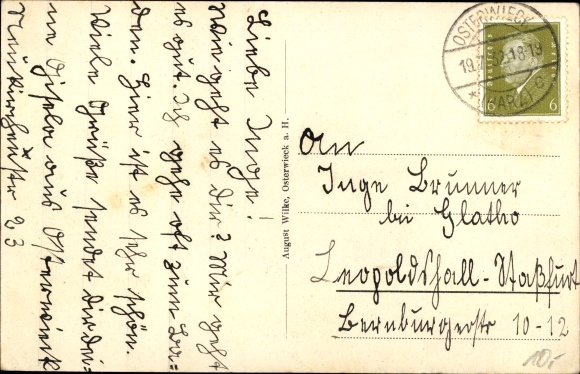 Liebe Inge!
Wie geht es Dir? Mir geht
es gut. Ich gehe oft zum Ba=
den. Hier ist es sehr schön.
Viele Grüße sendet Dir Dei-
ne Gisela aus Osterwieck
Neukirchenstr 23
August Wilke, Osterwieck a. H.
OSTERWIECK
19.7.32.18-19
* (HARZ) c
6 6
An
Inge Brunner
bei Glatho
Leopoldshall-Staßfurt
Bernburgerstr 10-12
10,-